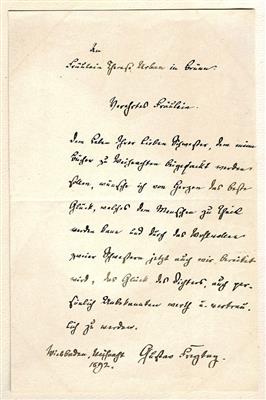 An
Fräulein Therese Urban in Brünn.
Verehrtes Fräulein.
Dem Leben Ihrer lieben Schwester, dem meine
Bücher zu Weihnachten beigepackt werden
sollen, wünsche ich von Herzen das beste
Glück, welches dem Menschen zu Theil
werden kann und durch das Wohlwollen
zweier Schwestern jetzt auch mir bereitet
wird, das Glück des Dichters, auch per-
sönlich Unbekannten werth u. vertrau-
lich zu werden.
Wiesbaden, Weihnacht Gustav Freytag.
1892.